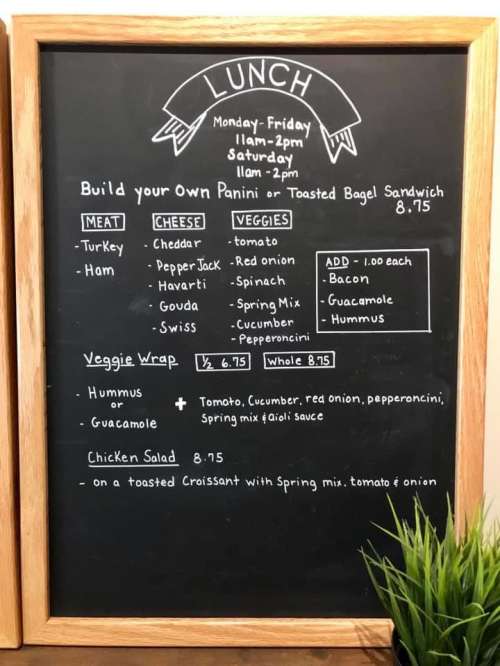 LUNCH
Monday-Friday
11am-2pm
Saturday
11am-2pm
Build your Own Panini or Toasted Bagel Sandwich
8.75
MEAT
- Turkey
- Ham
CHEESE
- Cheddar
- Pepper Jack
- Havarti
- Gouda
- Swiss
VEGGIES
- tomato
- Red onion
- Spinach
- Spring Mix
- Cucumber
- Pepperoncini
ADD - 1.00 each
- Bacon
- Guacamole
- Hummus
Veggie Wrap ½ 6.75 Whole 8.75
- Hummus
or
- Guacamole
+ Tomato, Cucumber, red onion, pepperoncini,
Spring mix & aioli sauce
Chicken Salad 8.75
- on a toasted Croissant with Spring mix, tomato & onion